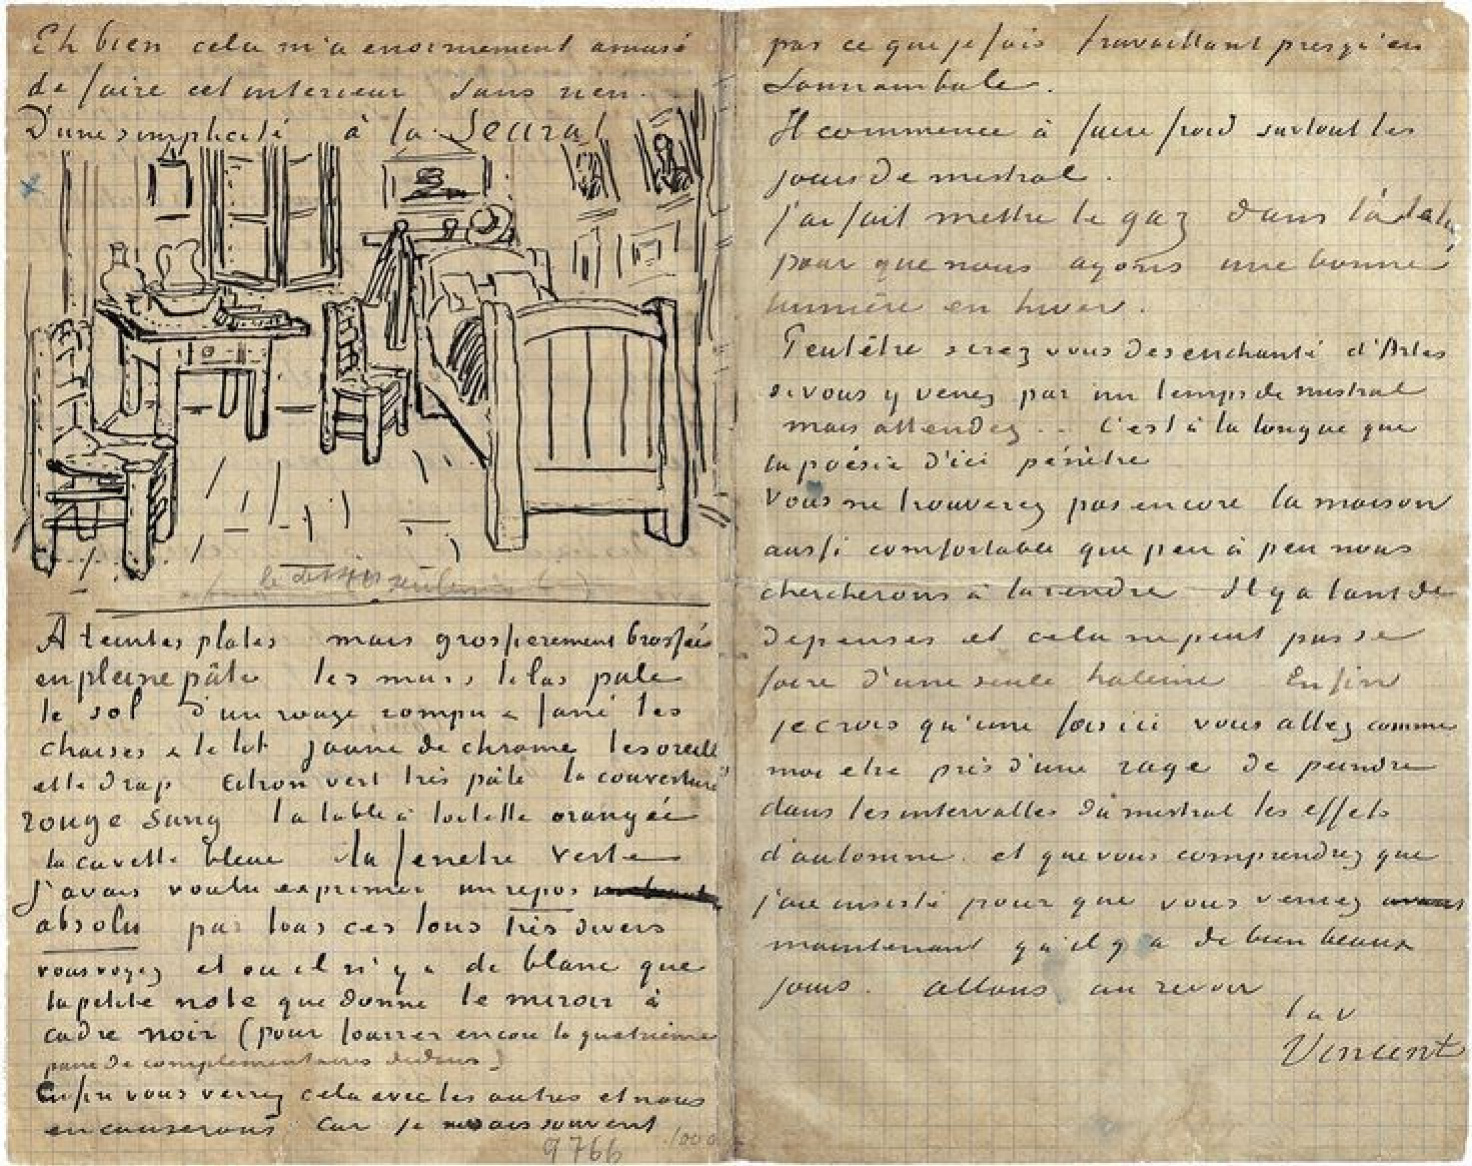 Eh bien cela m'a enormement amusé
de faire cet interieur sans rien.
D'une simplicité à la Seurat
le dessin seulement
A teintes plates mais grossierement brossées
en pleine pâte les murs lilas pale
le sol d'un rouge rompu & fané les
chaises & le lit jaune de chrome les oreill
et le drap citron vert très pâle la couverture
rouge sang la table à toilette orangée
la cuvette bleue la fenetre verte
J'avais voulu exprimer un repos
absolu par tous ces tons très divers
vous voyez et ou il n'y a de blanc que
la petite note que donne le miroir à
cadre noir (pour fourrer encore la quatrième
paire de complementaires dedans)
Enfin vous verrez cela avec les autres et nous
en causerons car je ne sais souvent
9766 1000
pas ce que je fais travaillant presqu'en
somnambule.
Il commence à faire froid surtout les
jours de mistral.
J'ai fait mettre le gaz dans l'atelier
pour que nous ayons une bonne
lumière en hiver.
Peutêtre serez vous desenchanté d'Arles
si vous y venez par un temps de mistral
mais attendez .. C'est à la longue que
la poésie d'ici pénètre
Vous ne trouverez pas encore la maison
aussi comfortable que peu à peu nous
chercherons à la rendre Il y a tant de
depenses et cela ne peut pas se
faire d'une seule haleine Enfin
je crois qu'une fois ici vous allez comme
moi etre pris d'une rage de peindre
dans les intervalles du mistral les effets
d'automne. et que vous comprendrez que
j'aie insisté pour que vous veniez
maintenant qu'il y a de bien beaux
jours. allons au revoir
t. à v
Vincent